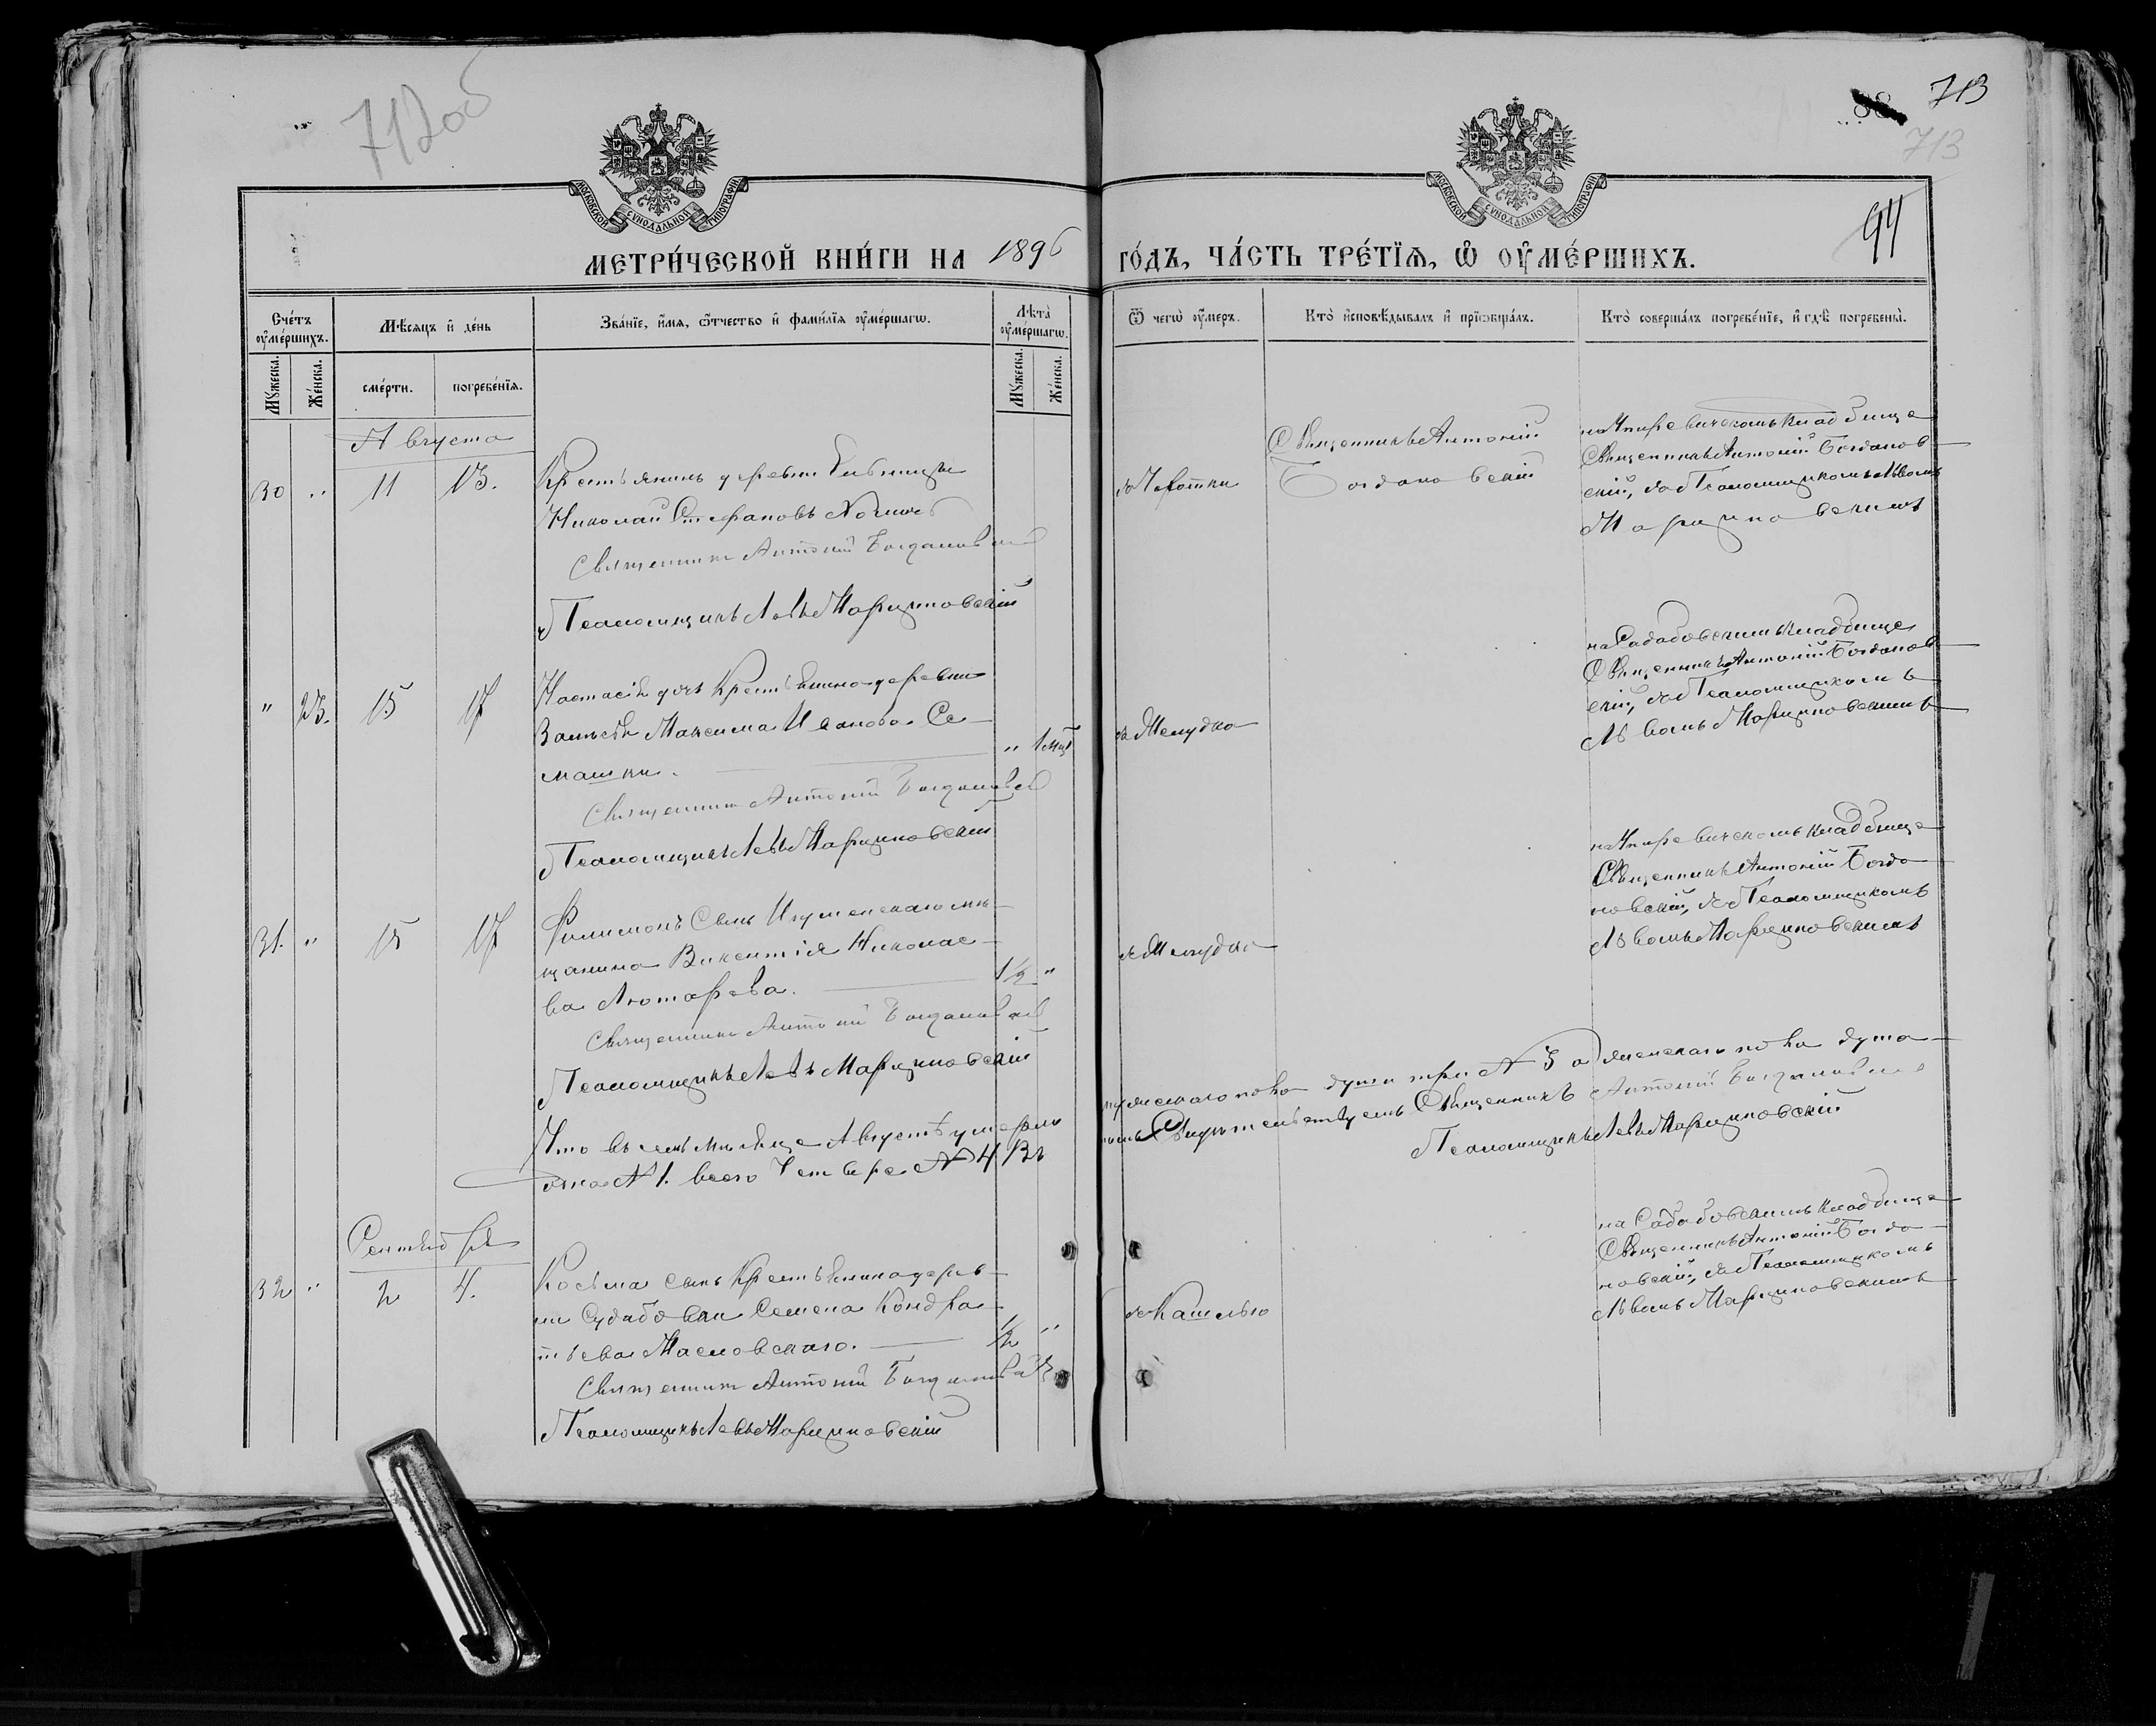 712об
713
713
94
МОСКОВСКОЙ СѴНОДАЛЬНОЙ ТИПОГРАФІИ
МОСКОВСКОЙ СѴНОДАЛЬНОЙ ТИПОГРАФІИ
МЕТРИ́ЧЕСКОЙ КНИ́ГИ НА 1896 ГО́ДЪ, ЧА́СТЬ ТРЕ́ТЇѦ, Ѡ҆ ОУ҆МЕ́РШИХЪ.
Сче́тъ оу҆ме́ршихъ.
Мꙋ́жеска.
Же́нска.
Мѣ́сяцъ и҆ де́нь
сме́рти.
погребе́нїѧ.
Зва́нїе, и҆́мѧ, ѻ҆́тчество и҆ фами́лїѧ оу҆ме́ршагѡ.
Лѣ́та оу҆ме́ршагѡ.
Мꙋ́жеска.
Же́нска.
Ѿ чегѡ̀ оу҆́меръ.
Кто̀ и҆сповѣ́дывалъ и҆ прїѡбща́лъ.
Кто̀ соверша́лъ погребе́нїе, и҆ гдѣ̀ погребены̀.
Августа
30 " 11 13.
Крестьянинъ деревни
Николай Стефановъ
Священникъ Антоній Богдановскій
Псаломщикъ Левъ Марциновскій
Чахотки
Священникъ Антоній
Богдановскій
кладбище
Священникъ Антоній Богданов-
скій, съ Псаломщикомъ Львомъ
Марциновскимъ
" 23. 15 17
Настасія дочь Крестьянина деревни
Максима Иванова Се-
машки.
" 1 мѣс
Священникъ Антоній Богдановскій
Псаломщикъ Левъ Марциновскій
Желудка
на кладбище
Священникъ Антоній Богданов-
скій, съ Псаломщикомъ
Львомъ Марциновскимъ
31. " 15 17
Филимонъ Сынъ Игуменскаго мѣ-
щанина Викентія Николае-
ва Лютарева.
1½ "
Священникъ Антоній Богдановскій
Псаломщикъ Левъ Марциновскій
Желудка
кладбище
Священникъ Антоній Богда-
новскій, съ Псаломщикомъ
Львомъ Марциновскимъ
Что въ семъ мѣсяце Августѣ умерло мужескаго пола души три № 3 а женскаго пола душа
одна № 1. всего Четыре № 4 Въ Свидѣтельствуемъ Священникъ Антоній Богдановскій
Псаломщикъ Левъ Марциновскій
Сентября
32 " 2 4.
Косьма сынъ Крестьянина дерев-
ни Судабовки Семена Кондра-
тьева Масловскаго.
½ "
Священникъ Антоній Богдановскій
Псаломщикъ Левъ Марциновскій
Кашлью
на кладбище
Священникъ Антоній Богда-
новскій, съ Псаломщикомъ
Львомъ Марциновскимъ